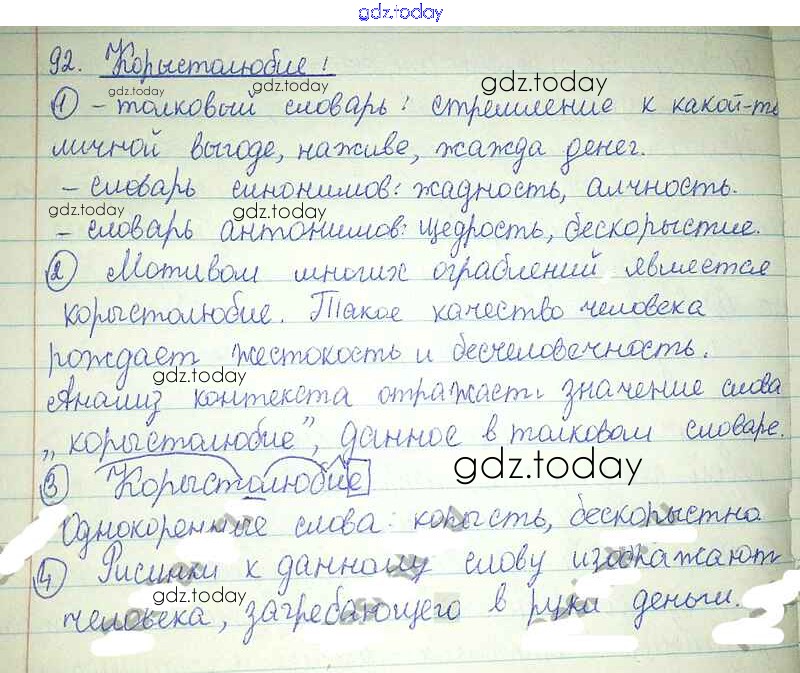 gdz.today
92. Корыстолюбие!
gdz.today gdz.today gdz.today
1 - толковый словарь: стремление к какой-то
личной выгоде, наживе, жажда денег.
- словарь синонимов: жадность, алчность.
gdz.today gdz.today
- словарь антонимов: щедрость, бескорыстие.
2 Мотивом многих ограблений является
корыстолюбие. Такое качество человека
рождает жестокость и бесчеловечность.
gdz.today
Анализ контекста отражает значение слова
„корыстолюбие", данное в толковом словаре.
3 Корыстолюбие
gdz.today
Однокоренные слова: корысть, бескорыстно
4 Рисунки к данному слову изображают
человека, загребающего в руки деньги.
gdz.today gdz.today